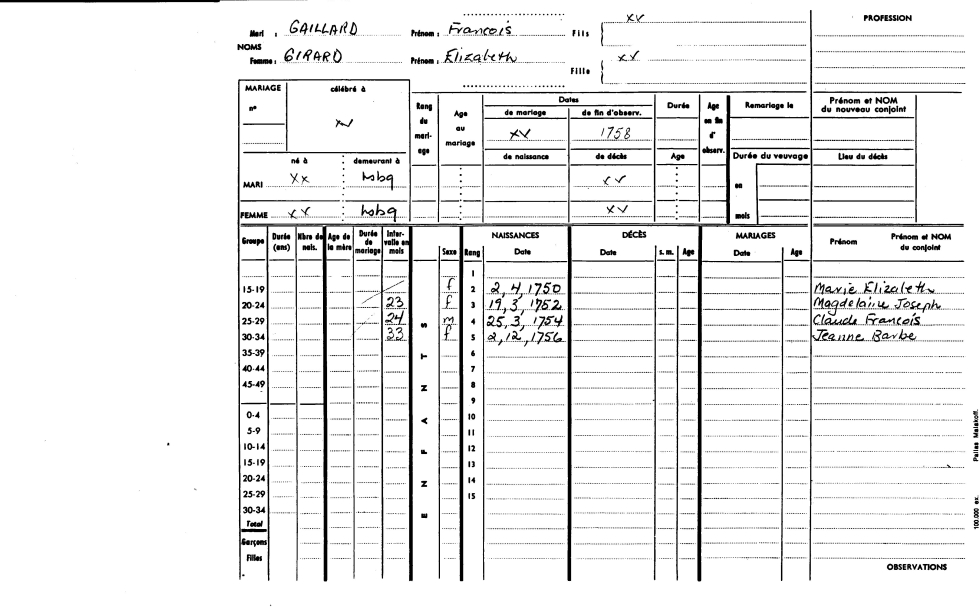 xv PROFESSION
Mari : GAILLARD Prénom : Francois Fils
NOMS
Femme : GIRARD Prénom : Elizabeth xx
Fille
MARIAGE célébré à Rang du mariage Age au mariage Dates Durée Age en fin d'observ. Remariage le Prénom et NOM du nouveau conjoint
n° de mariage de fin d'observ.
xv xv 1758
né à demeurant à de naissance de décès Age Durée du veuvage Lieu du décès
MARI Xx hsbg xv en
FEMME xx hsbg xv mois
Groupe Durée (ans) Nbre de nais. Age de la mère Durée de mariage Intervalle en mois ENFANTS Sexe Rang NAISSANCES Date DÉCÈS Date s. m. Age MARIAGES Date Age Prénom Prénom et NOM du conjoint
1
15-19 f 2 2,4,1750 Marie Elizabeth
20-24 23 f 3 19,3,1752 Magdelaine Joseph
25-29 24 m 4 25,3,1754 Claude Francois
30-34 33 f 5 2,12,1756 Jeanne Barbe
35-39 6
40-44 7
45-49 8
9
0-4 10
5-9 11
10-14 12
15-19 13
20-24 14
25-29 15
30-34
Total
Garçons
Filles
OBSERVATIONS
100.000 ex. Pallas Malakoff.